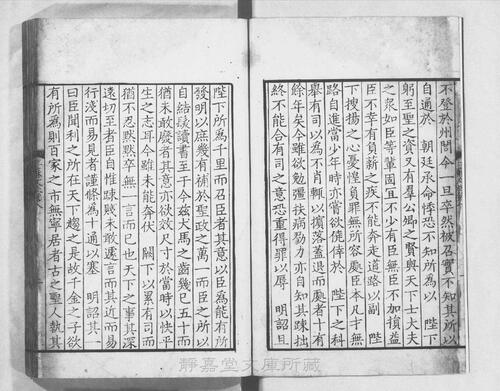 不登於州閭今一旦卒然被召實不知其所以
自通於 朝廷承命悸恐不知所為以 陛下
躬至聖之資又有羣公卿之賢與天下士大夫
之衆如臣等輩固宜不少有臣無臣不加損益
臣不幸有負薪之疾不能奔走道路以副 陛
下搜揚之心憂惶負罪無所容處臣本凡才無
路自進當少年時亦嘗欲僥倖於 陛下之科
舉有司以為不肖輒以擯落蓋退而處者十有
餘年矣今雖欲勉彊扶病勠力亦自知其踈拙
終不能合有司之意恐重得罪以辱 明詔且
陛下所為千里而召臣者其意以臣為能有所
發明以庶幾有補於聖政之萬一而臣之所以
自結髮讀書至于今茲犬馬之齒幾已五十而
猶未敢廢者其意亦欲效尺寸於當時以快平
生之志耳今雖未能奔伏 闕下以累有司而
猶不忍默默卒無一言而已也天下之事其深
遠切至者臣自惟踈賤未敢遽言而其近而易
行淺而易見者謹條為十通以塞 明詔其一
曰臣聞利之所在天下趨之是故千金之子欲
有所為則百家之市無寧居者古之聖人執其
靜嘉堂文庫所藏